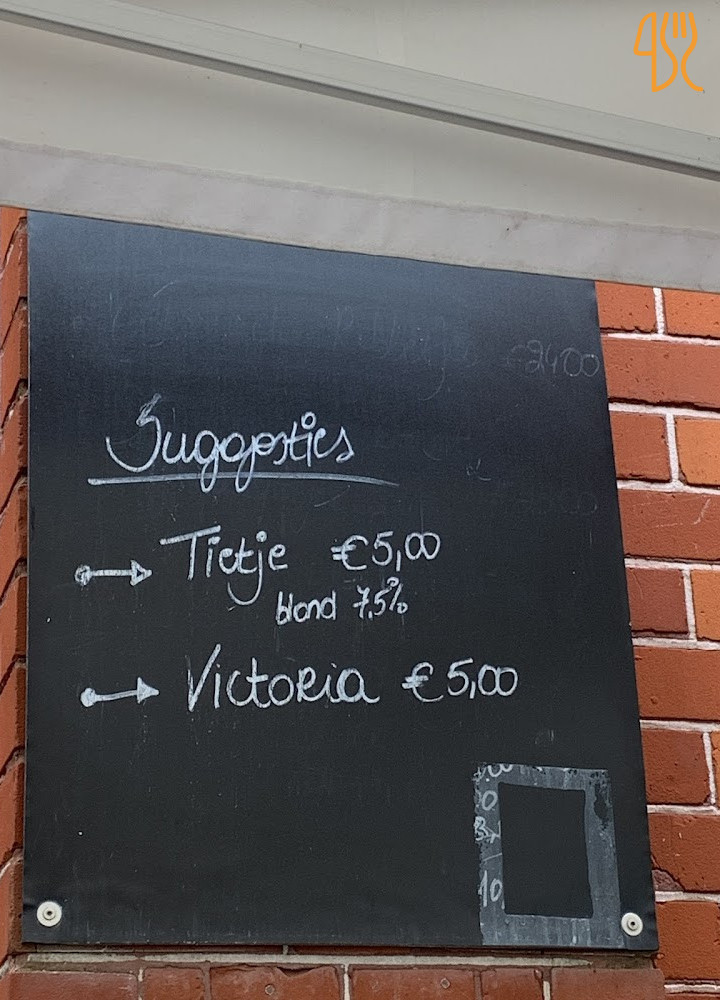 €2400
Suggesties
Tietje €5,00
blond 7,5%
Victoria €5,00
10,